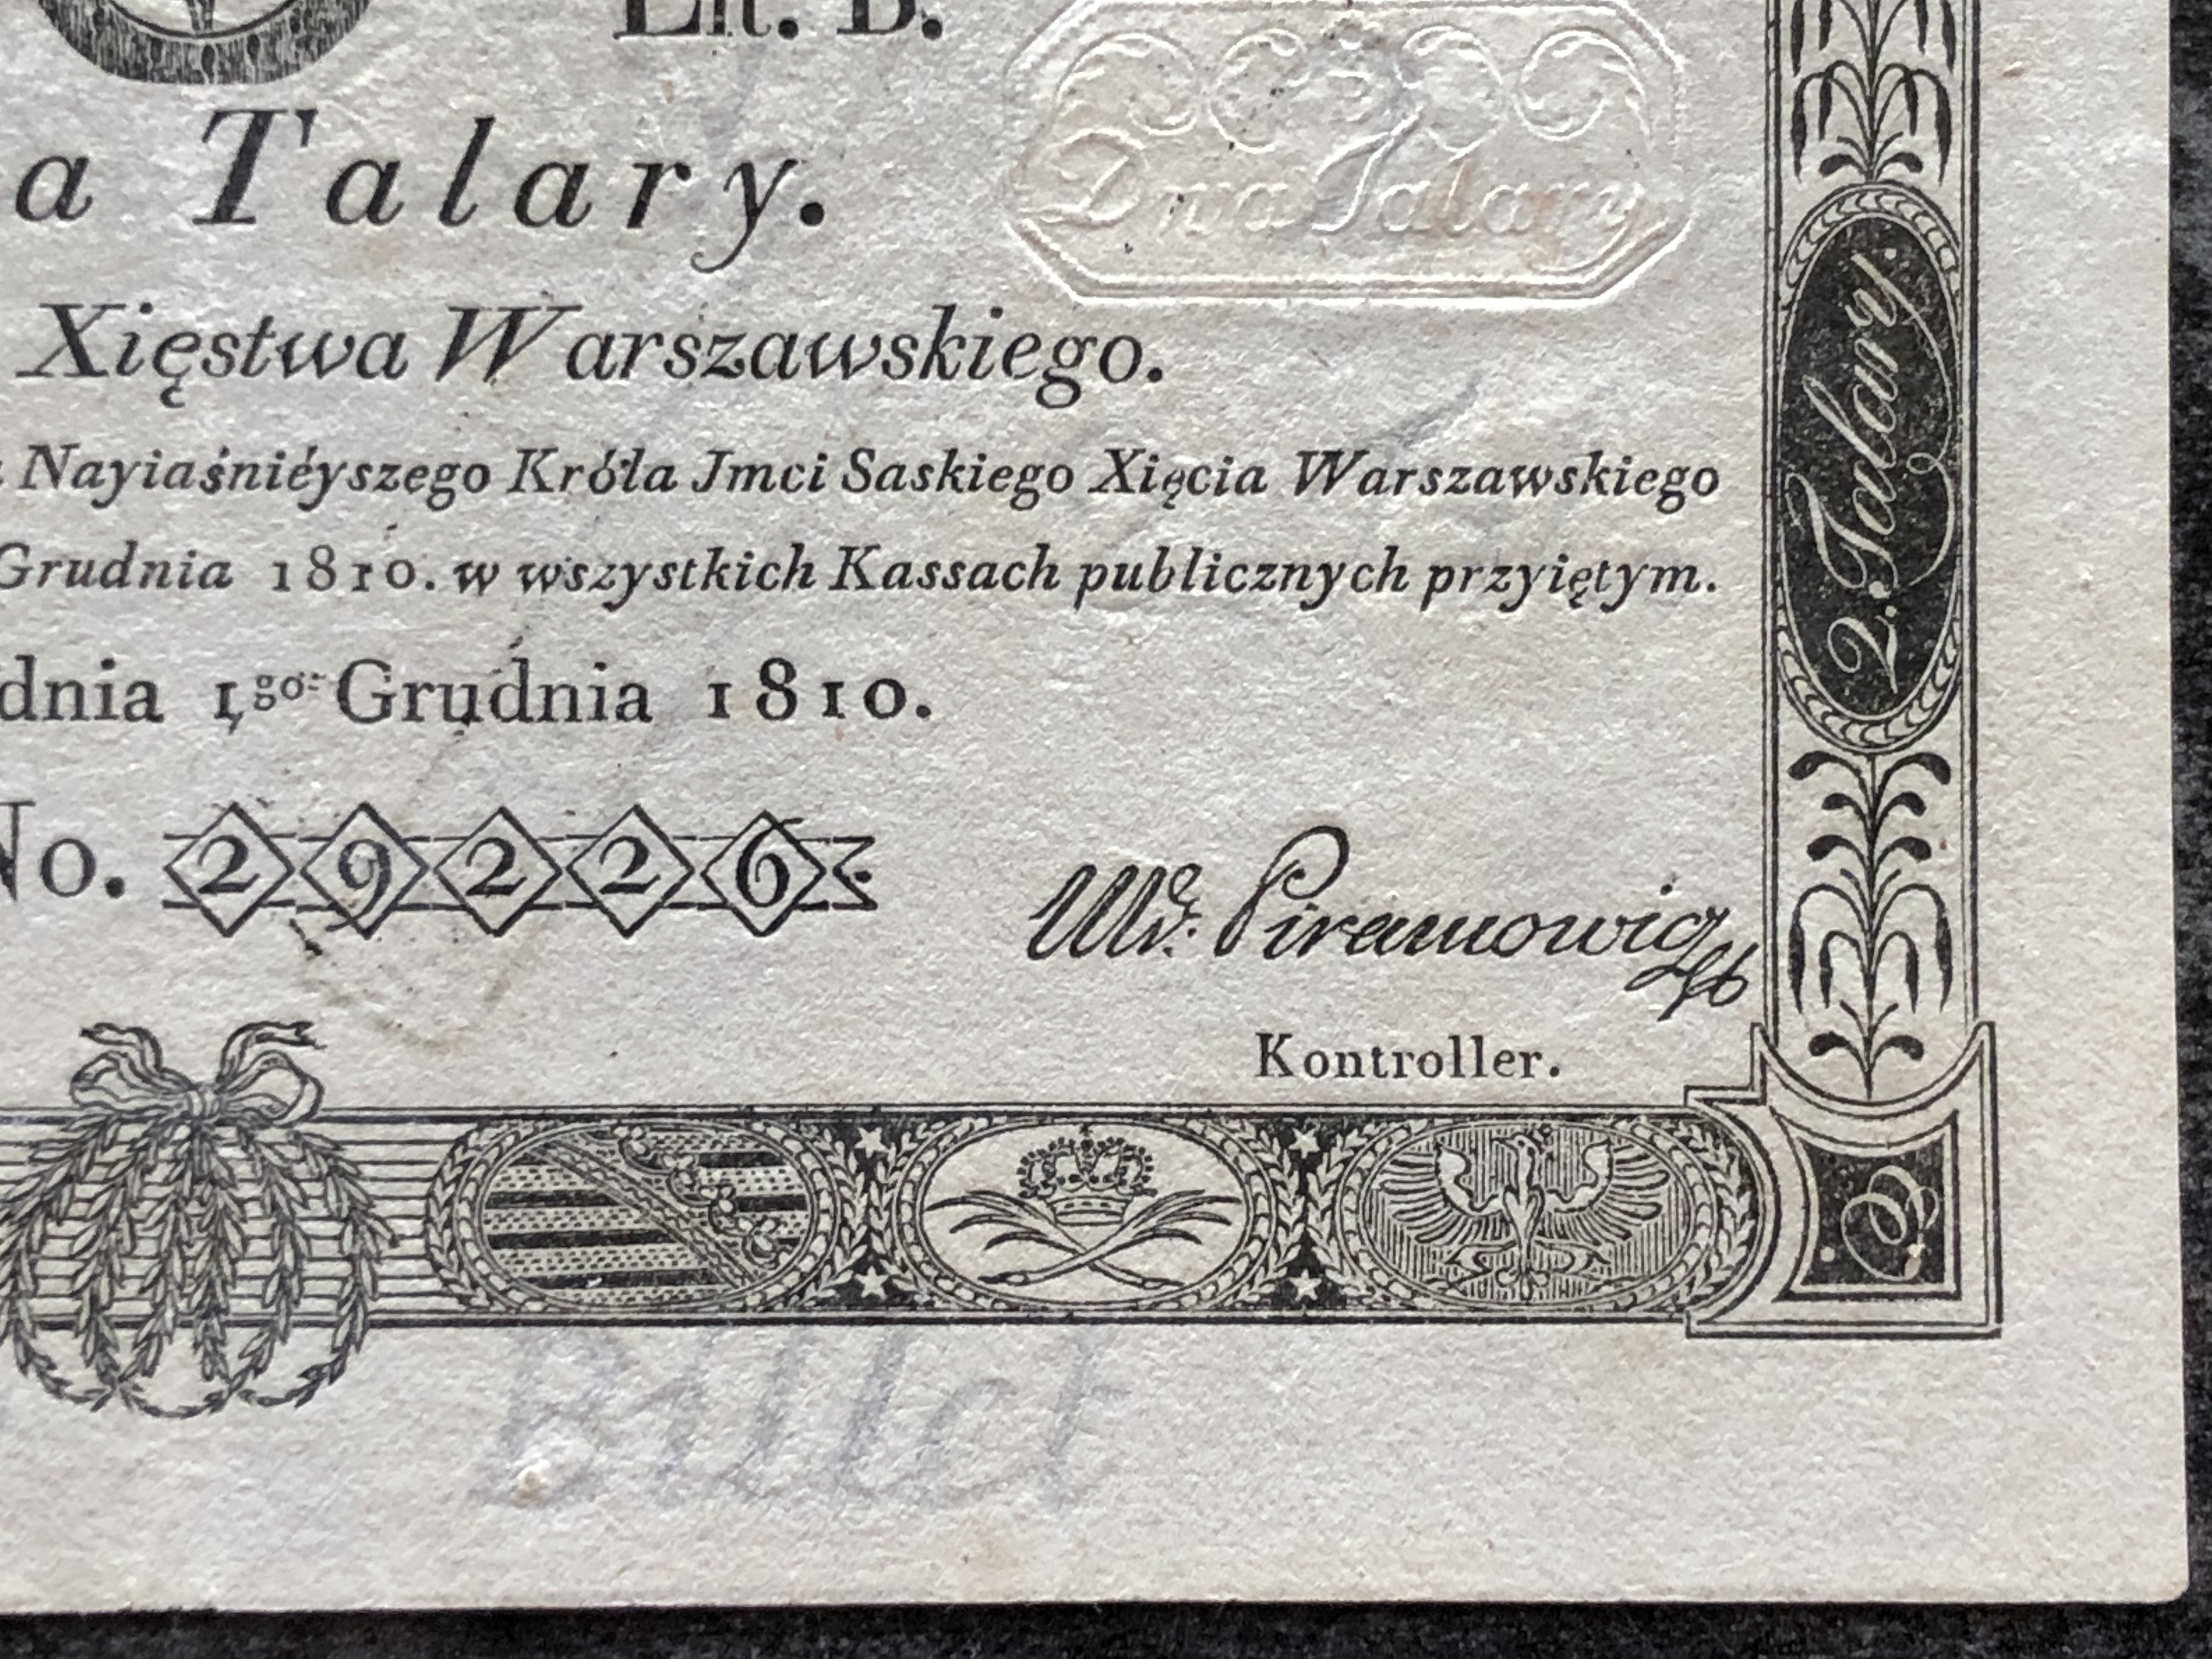 Lit. B.
a Talary.
Dwa Talary
Xięstwa Warszawskiego.
Nayiaśniéyszego Króla Jmci Saskiego Xięcia Warszawskiego
Grudnia 1810. w wszystkich Kassach publicznych przyiętym.
dnia 1go Grudnia 1810.
No. 29226
Piramowicz
Kontroller.
2. Talary.
Billet